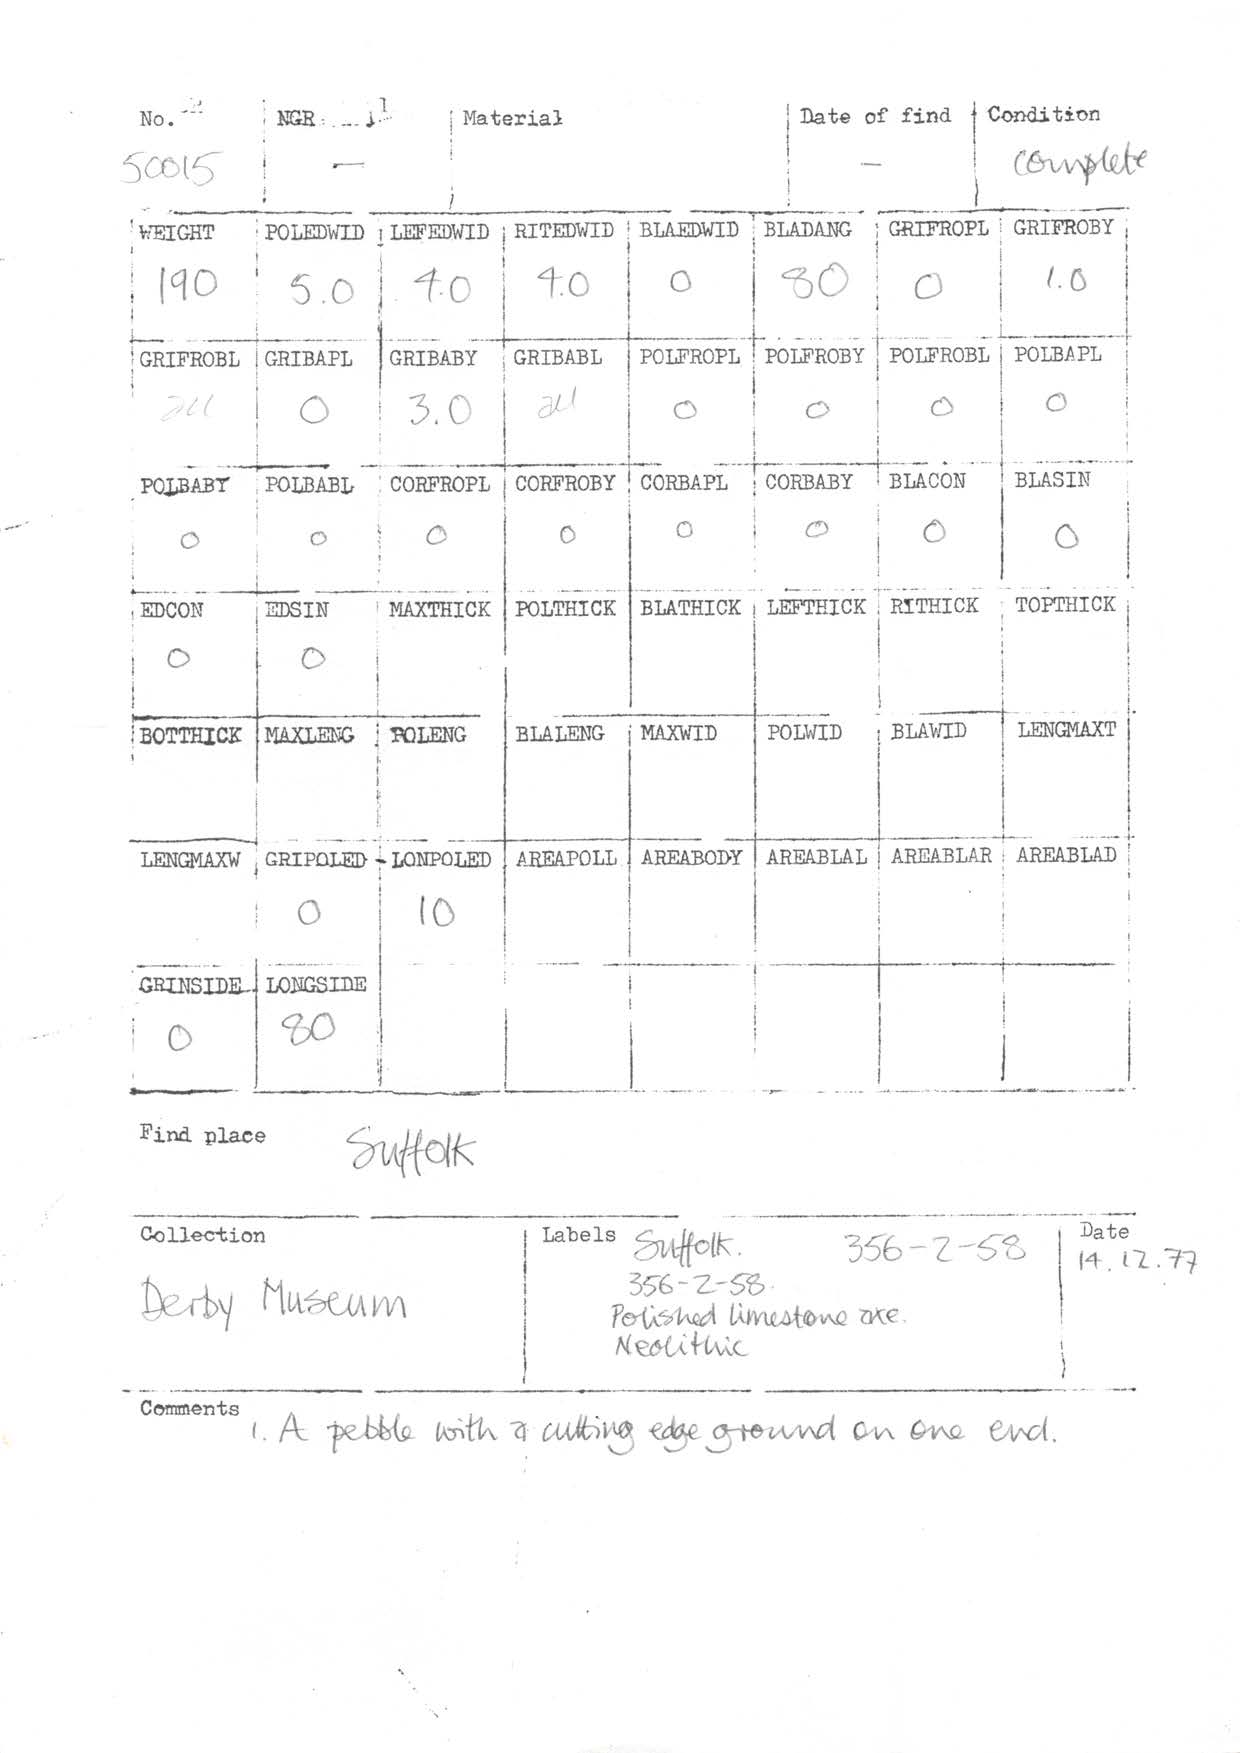 No. NGR Material Date of find Condition
50015 — — complete
WEIGHT POLEDWID LEFEDWID RITEDWID BLAEDWID BLADANG GRIFROPL GRIFROBY
190 5.0 4.0 4.0 0 80 0 1.0
GRIFROBL GRIBAPL GRIBABY GRIBABL POLFROPL POLFROBY POLFROBL POLBAPL
all 0 3.0 all 0 0 0 0
POLBABY POLBABL CORFROPL CORFROBY CORBAPL CORBABY BLACON BLASIN
0 0 0 0 0 0 0 0
EDCON EDSIN MAXTHICK POLTHICK BLATHICK LEFTHICK RITHICK TOPTHICK
0 0
BOTTHICK MAXLENG POLENG BLALENG MAXWID POLWID BLAWID LENGMAXT
LENGMAXW GRIPOLED LONPOLED AREAPOLL AREABODY AREABLAL AREABLAR AREABLAD
0 10
GRINSIDE LONGSIDE
0 80
Find place Suffolk
Collection Labels Suffolk. 356-2-58 Date
14.12.77
356-2-58.
Derby Museum Polished limestone axe.
Neolithic
Comments
1. A pebble with a cutting edge ground on one end.